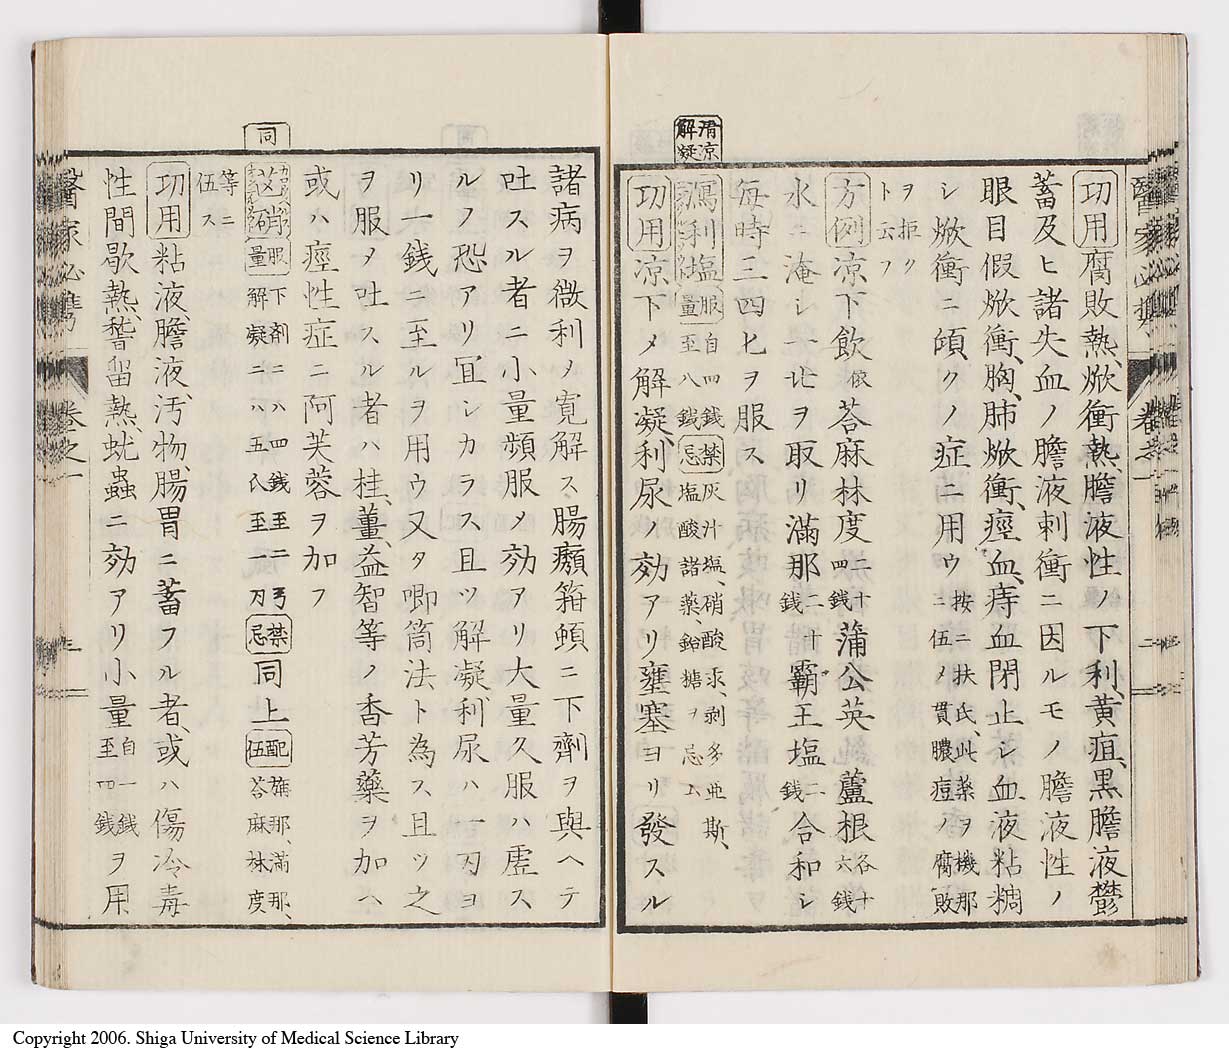 功用腐敗熱、焮衝熱、膽液性ノ下利、黄疸、黒膽液鬱
蓄及ヒ諸失血ノ膽液刺衝ニ因ルモノ膽液性ノ
眼目假焮衝、胸、肺焮衝、痙血、痔血閉止シ血液粘稠
シ焮衝ニ傾クノ症ニ用ウ按ニ扶氏、此薬ヲ機那
ニ伍メ貫膿痘ノ腐敗
ヲ拒ク
ト云フ
方例凉下飲依荅麻林度二十四銭蒲公英蘆根各十六銭
水ニ淹シ一比ヲ取リ滿那二十銭霸王塩二銭合和シ
毎時三四匕ヲ服ス
清凉解凝
瀉利塩服量自四銭至八銭禁忌灰汁塩、硝酸汞、剥多亜斯、
塩酸諸薬、鉛糖ヲ忌ム
功用凉下メ解凝、利尿ノ効アリ壅塞ヨリ發スル
諸病ヲ微利メ寛解ス腸癪箝頓ニ下劑ヲ與ヘテ
吐スル者ニ小量頻服メ効アリ大量久服ハ虚ス
ルノ恐アリ冝シカラス且ツ解凝利尿ハ一刃ヨ
リ一銭ニ至ルヲ用ウ又タ喞筒法ト為ス且ツ之
ヲ服メ吐スル者ハ桂、薑、益智等ノ香芳藥ヲ加ヘ
或ハ痙性症ニ阿芙蓉ヲ加フ
同
芒硝服量下剤ニハ四銭至二弓
解凝ニハ五氏至一刃禁忌同上配伍旃那、滿那、
荅麻林度
等ニ
伍ス
功用粘液膽液、汚物、腸胃ニ蓄フル者、或ハ傷冷毒
性間歇熱稽留熱、蚘蟲ニ効アリ小量自一銭至四銭ヲ用
醫家必携
卷之一
二
醫家必携
卷之一
三
Copyright 2006. Shiga University of Medical Science Library